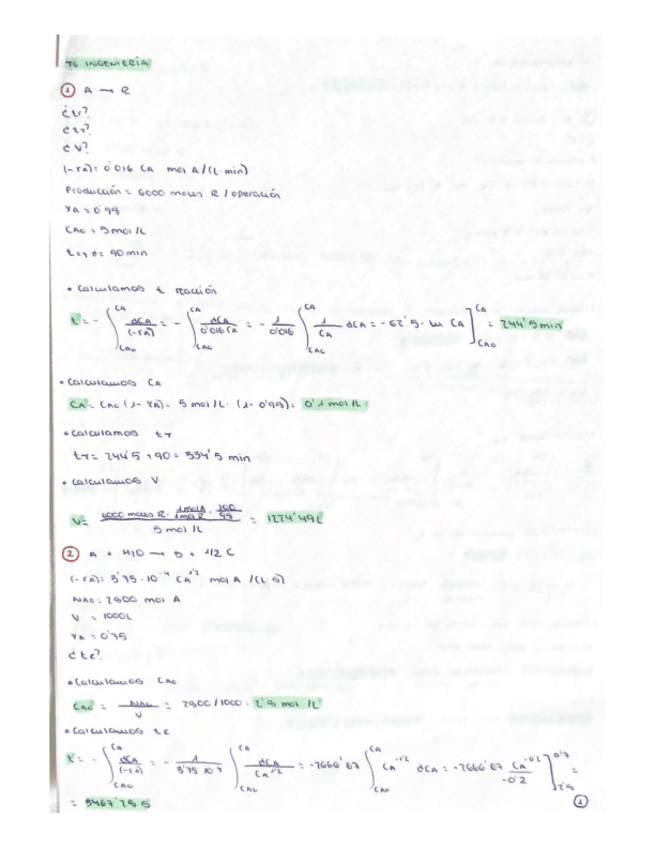 T6 INGENIERÍA
① A → R
¿tr?
¿tT?
¿V?
(-rA) = 0'016 CA mol A/(L·min)
Producción = 6000 moles R / operación
XA = 0'99
CAo = 5 mol/L
tcyd = 90 min
• Calculamos t reacción
t = - ∫ CAo CA dCA/(-rA) = - ∫ CAo CA dCA/0'016 CA = - 1/0'016 ∫ CAo CA 1/CA dCA = -62'5 · ln CA ] CAo CA = 244'5 min
• Calculamos CA
CA = CAo (1 - XA) = 5 mol/L · (1 - 0'99) = 0'1 mol/L
• Calculamos tT
tT = 244'5 + 90 = 334'5 min
• Calculamos V
V = 6000 moles R · 1 mol A/1 mol R · 100/99 / 5 mol/L = 1224'49 L
② A + H2O → B + 1/2 C
(-rA) = 3'75 · 10⁻⁴ CA¹'² mol A /(L·s)
NAo = 2500 mol A
V = 1000 L
XA = 0'75
¿tc?
• Calculamos CAo
CAo = NAo/V = 2500/1000 = 2'5 mol/L
• Calculamos tc
t = - ∫ CAo CA dCA/(-rA) = - 1/3'75·10⁻⁴ ∫ CAo CA dCA/CA¹'² = -2666'67 ∫ CAo CA CA⁻¹'² dCA = -2666'67 CA⁻⁰'²/-0'2 ] 2'5 =
= 5467'25 s
①